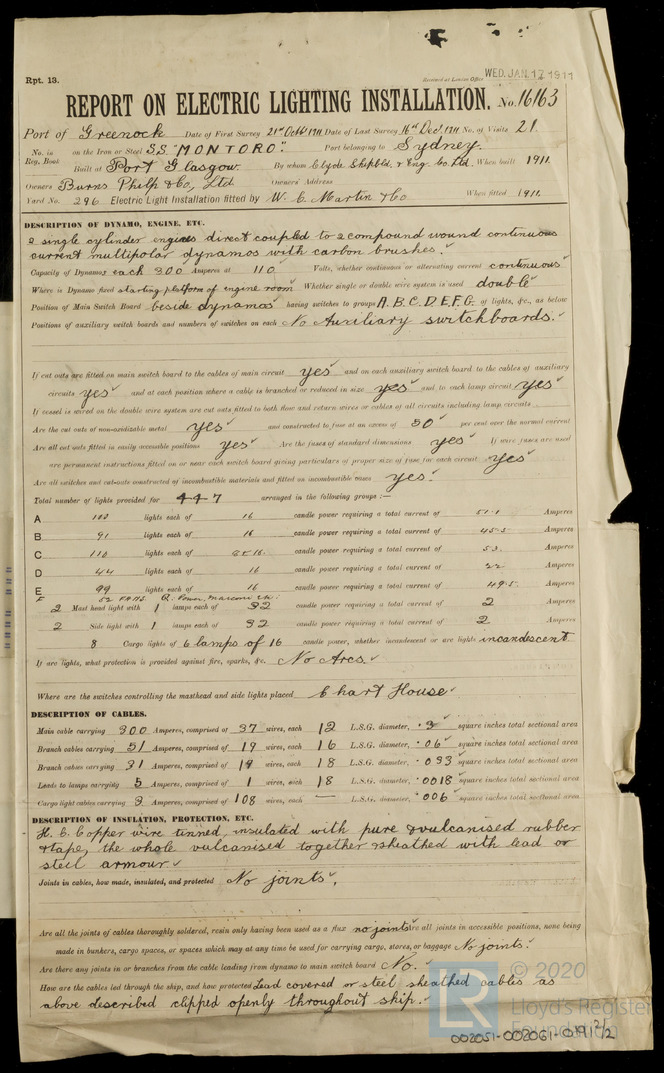 Rpt. 13.
Received at London Office WED. JAN. 17 1911
REPORT ON ELECTRIC LIGHTING INSTALLATION. No. 16163
Port of Greenock Date of First Survey 21st Octbr 1911 Date of Last Survey 16th Decr 1911 No. of Visits 21
No. in Reg. Book on the Iron or Steel S.S "MONTORO" Port belonging to Sydney
Built at Port Glasgow By whom Clyde Shipbld. & Eng. Co Ltd. When built 1911
Owners Burns Philp & Co, Ltd Owners' Address
Yard No. 296 Electric Light Installation fitted by W. C. Martin & Co When fitted 1911
DESCRIPTION OF DYNAMO, ENGINE, ETC.
2 single cylinder engines direct coupled to 2 compound wound continuous
current multipolar dynamos with carbon brushes.
Capacity of Dynamos each 300 Amperes at 110 Volts, whether continuous or alternating current continuous
Where is Dynamo fixed starting platform of engine room Whether single or double wire system is used double
Position of Main Switch Board beside dynamos having switches to groups A, B, C, D, E, F, G. of lights, &c., as below
Positions of auxiliary switch boards and numbers of switches on each No Auxiliary switchboards.
If cut outs are fitted on main switch board to the cables of main circuit yes and on each auxiliary switch board to the cables of auxiliary
circuits yes and at each position where a cable is branched or reduced in size yes and to each lamp circuit yes
If vessel is wired on the double wire system are cut outs fitted to both flow and return wires or cables of all circuits including lamp circuits
Are the cut outs of non-oxidizable metal yes and constructed to fuse at an excess of 50 per cent over the normal current
Are all cut outs fitted in easily accessible positions yes Are the fuses of standard dimensions yes If wire fuses are used
are permanent instructions fitted on or near each switch board giving particulars of proper size of fuse for each circuit yes
Are all switches and cut-outs constructed of incombustible materials and fitted on incombustible bases yes.
Total number of lights provided for 447 arranged in the following groups :—
A 102 lights each of 16 candle power requiring a total current of 51.0 Amperes
B 91 lights each of 16 candle power requiring a total current of 45.5 Amperes
C 110 lights each of 8 & 16 candle power requiring a total current of 53. Amperes
D 44 lights each of 16 candle power requiring a total current of 22 Amperes
E 99 lights each of 16 candle power requiring a total current of 49.5 Amperes
F 52 FANS G. Power, Marconi &c.
2 Mast head light with 1 lamps each of 32 candle power requiring a total current of 2 Amperes
2 Side light with 1 lamps each of 32 candle power requiring a total current of 2 Amperes
8 Cargo lights of 6 lamps of 16 candle power, whether incandescent or arc lights incandescent
If arc lights, what protection is provided against fire, sparks, &c. No Arcs.
Where are the switches controlling the masthead and side lights placed Chart House
DESCRIPTION OF CABLES.
Main cable carrying 300 Amperes, comprised of 37 wires, each 12 L.S.G. diameter, .3 square inches total sectional area
Branch cables carrying 51 Amperes, comprised of 19 wires, each 16 L.S.G. diameter, .06 square inches total sectional area
Branch cables carrying 31 Amperes, comprised of 19 wires, each 18 L.S.G. diameter, .033 square inches total sectional area
Leads to lamps carrying 5 Amperes, comprised of 1 wires, each 18 L.S.G. diameter, .0018 square inches total sectional area
Cargo light cables carrying 3 Amperes, comprised of 108 wires, each — L.S.G. diameter, .006 square inches total sectional area
DESCRIPTION OF INSULATION, PROTECTION, ETC.
H. C. Copper wire tinned, insulated with pure & vulcanised rubber
& tape, the whole vulcanised together sheathed with lead or
steel armour
Joints in cables, how made, insulated, and protected No joints.
Are all the joints of cables thoroughly soldered, resin only having been used as a flux no joints Are all joints in accessible positions, none being
made in bunkers, cargo spaces, or spaces which may at any time be used for carrying cargo, stores, or baggage No joints.
Are there any joints in or branches from the cable leading from dynamo to main switch board No.
How are the cables led through the ship, and how protected Lead covered or steel sheathed cables as
above described clipped openly throughout ship.
LR
© 2020
Lloyd's Register
Foundation
002051-002061-0191 2/2